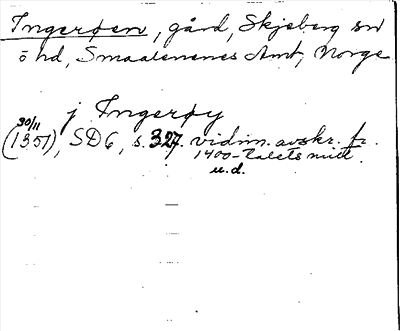 Ingerøen, gård, Skjeberg sn
ö hd, Smaalenenes Amt, Norge
j Ingerøy
30/11
(1351), SD 6, s. 327. vidim. avskr. fr.
1400-talets mitt.
u.d.